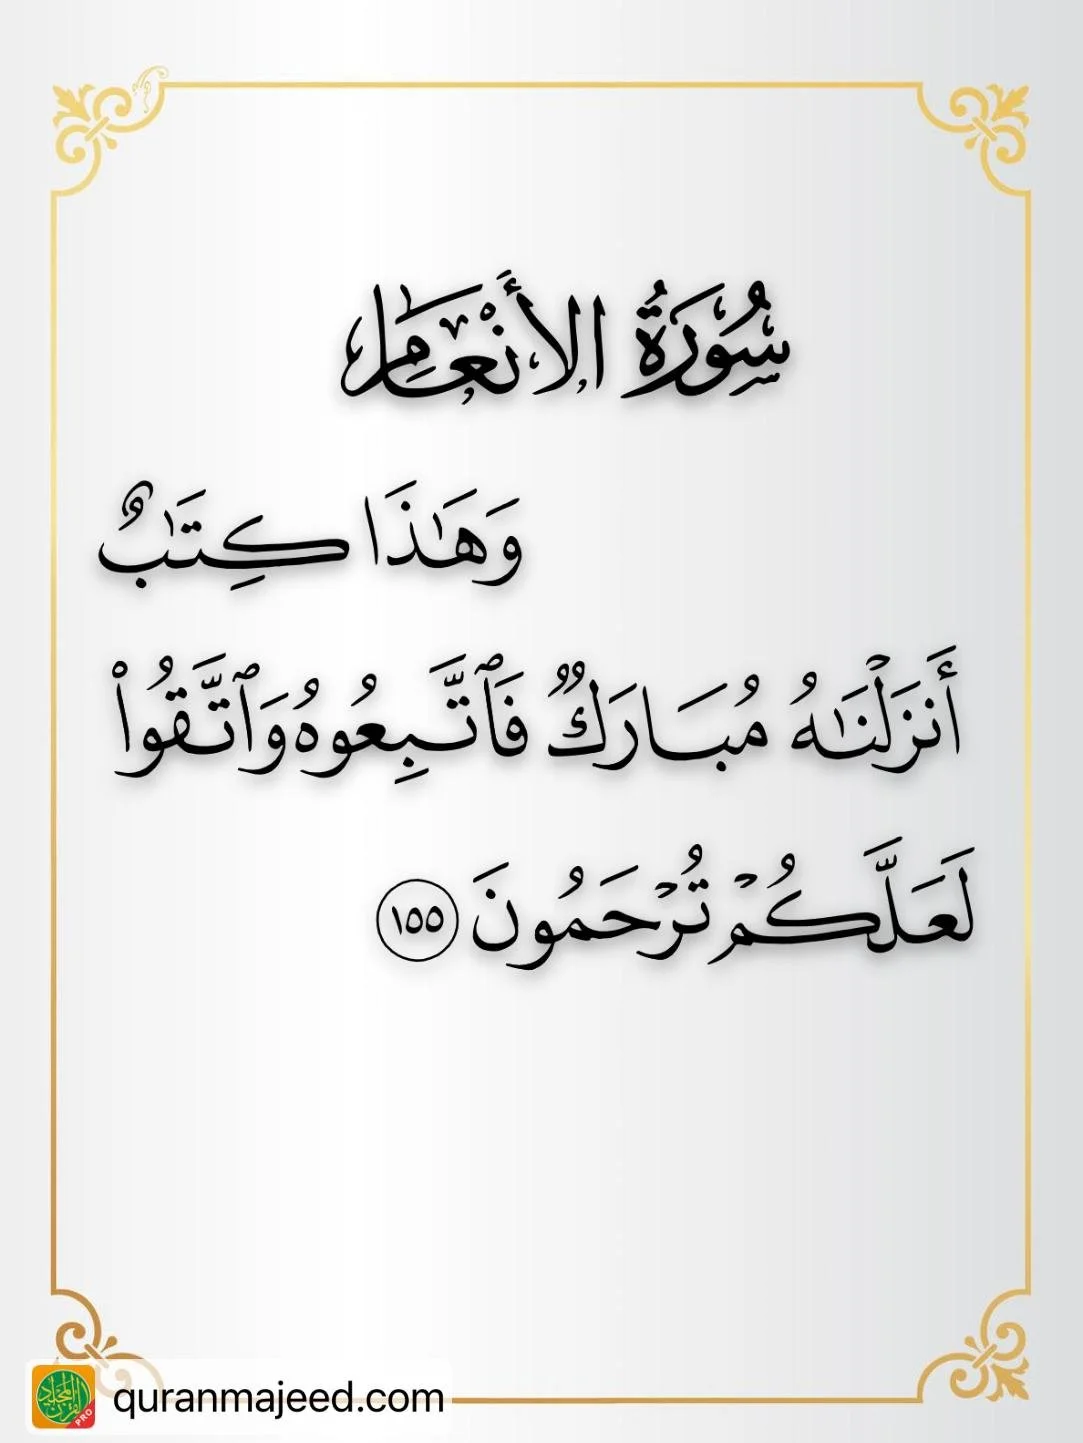 سُورَةُ الأَنْعَامِ
وَهَٰذَا كِتَٰبٌ
أَنزَلْنَٰهُ مُبَارَكٌ فَٱتَّبِعُوهُ وَٱتَّقُوا۟
لَعَلَّكُمْ تُرْحَمُونَ ١٥٥
القرآن المجيد PRO
quranmajeed.com